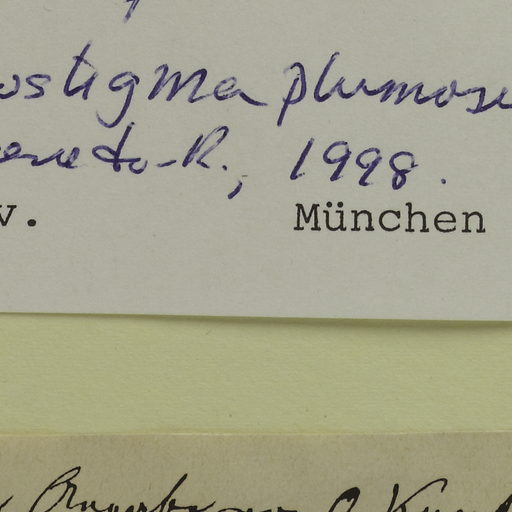 ostigma plumosu
eneto-R., 1998.
v. München